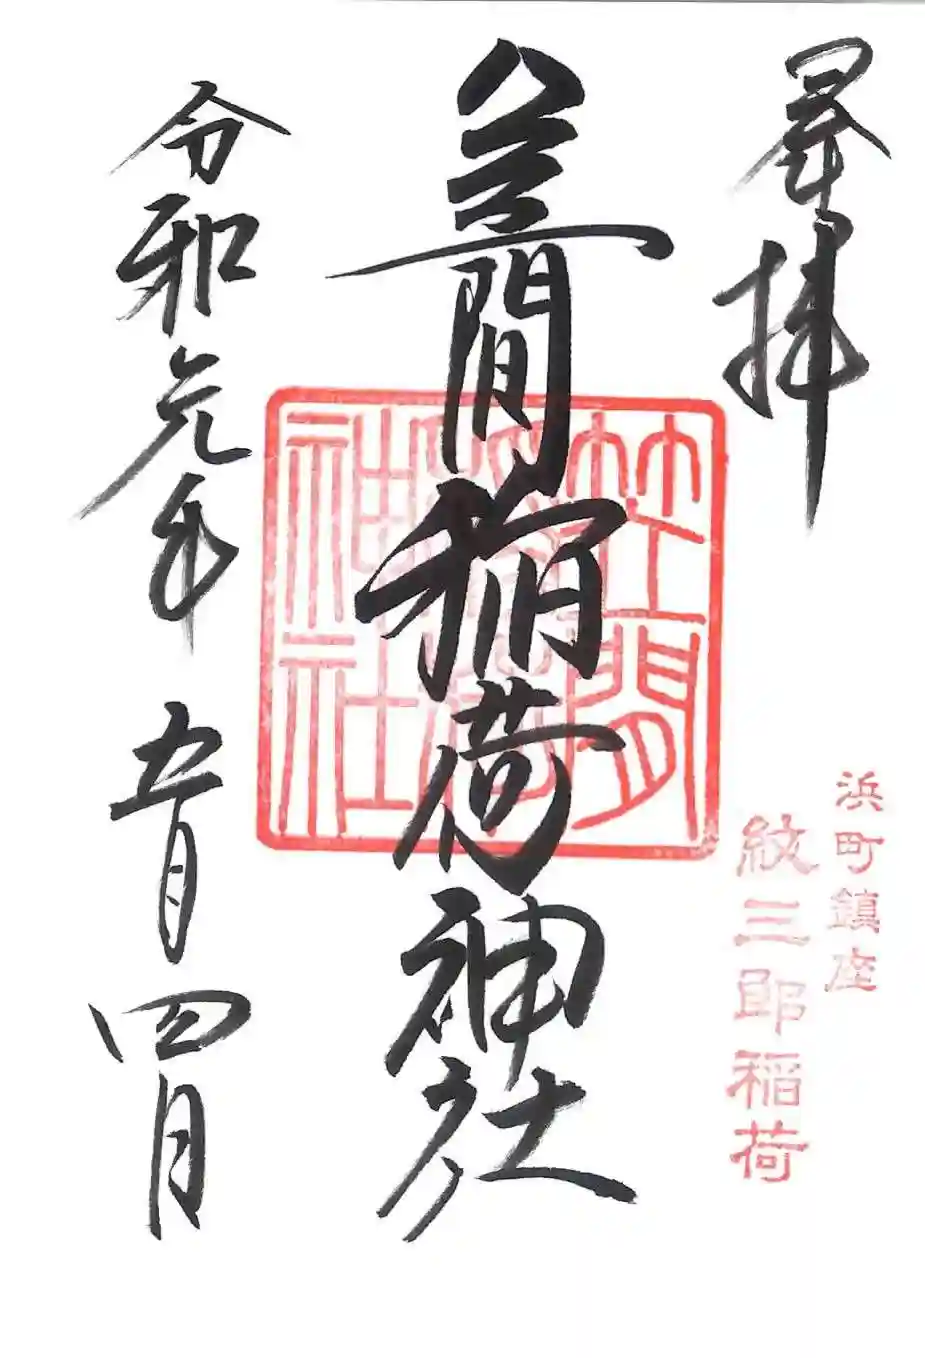 奉拝
浜町鎮座
紋三郎稲荷
笠間稲荷神社
笠間
稲荷
神社
令和元年五月四日